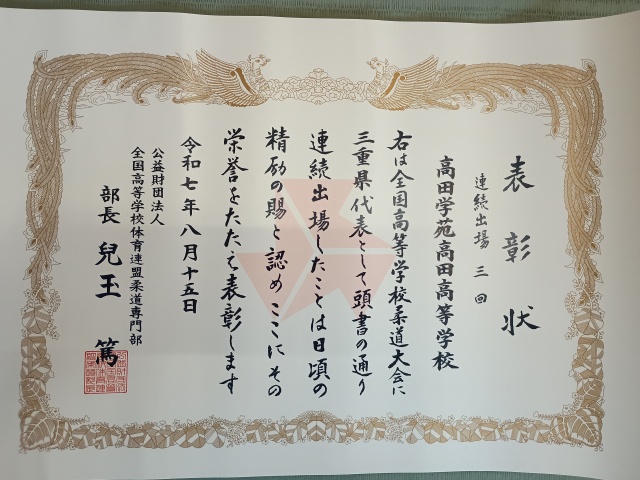 表彰状
連続出場 三回
高田学苑高田高等学校
右は全国高等学校柔道大会に
三重県代表として頭書の通り
連続出場したことは日頃の
精励の賜と認めここにその
栄誉をたたえ表彰します
令和七年八月十五日
公益財団法人
全国高等学校体育連盟柔道専門部
部長 兒玉 篤